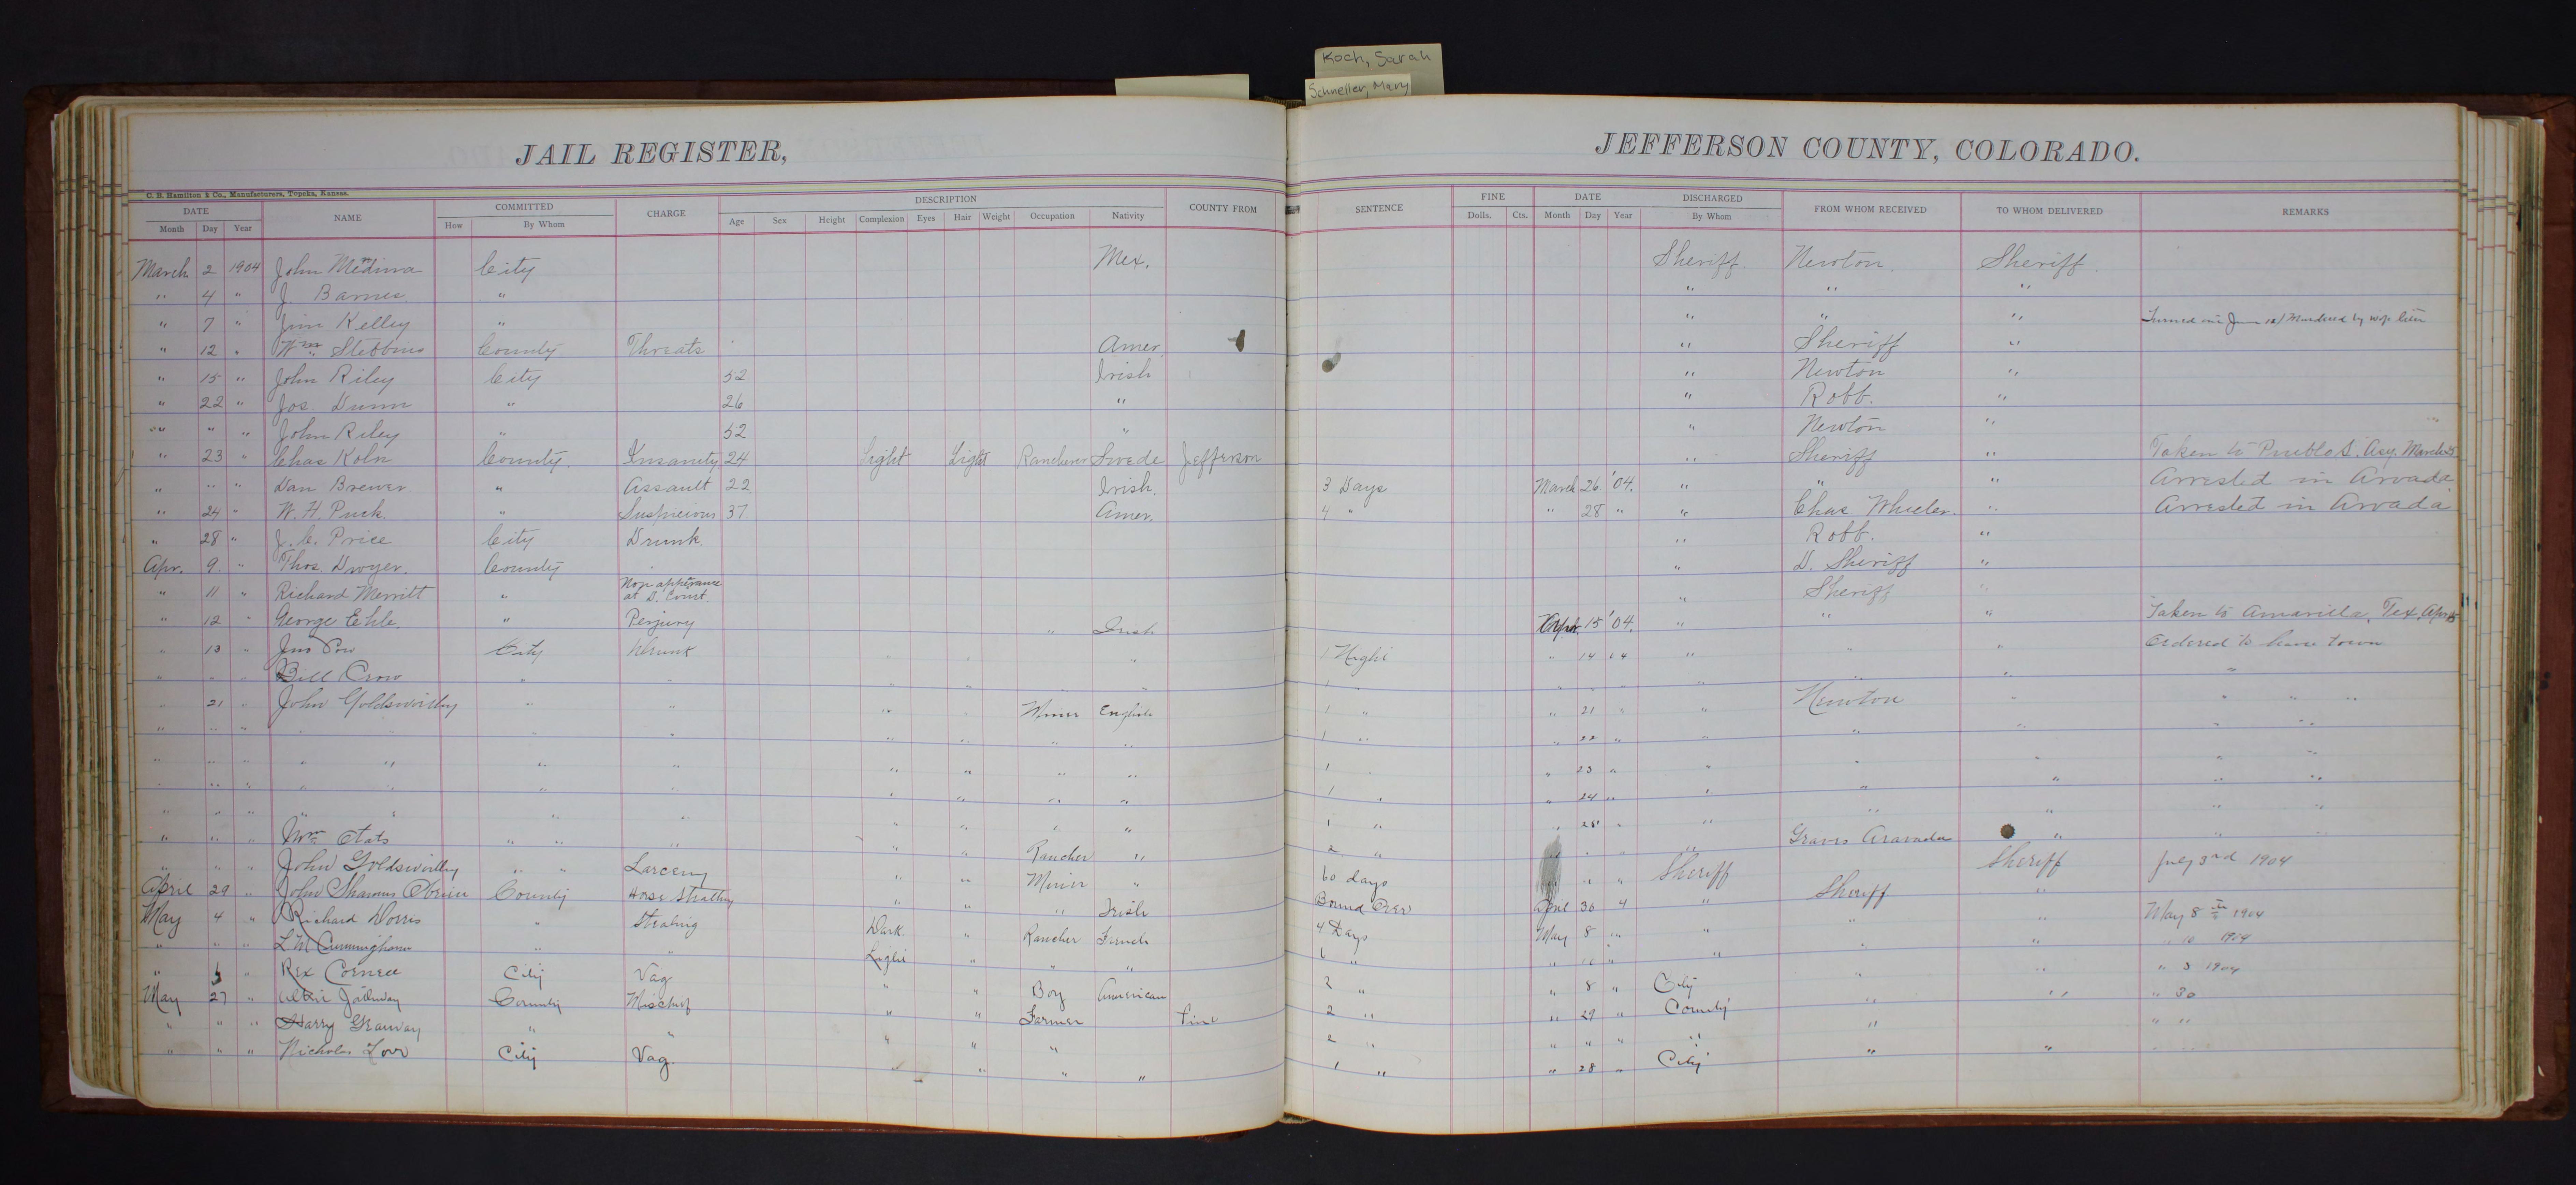 Koch, Sarah
Schneller, Mary
JAIL REGISTER, JEFFERSON COUNTY, COLORADO.
C. B. Hamilton & Co., Manufacturers, Topeka, Kansas.
DATE NAME COMMITTED CHARGE DESCRIPTION COUNTY FROM SENTENCE FINE DATE DISCHARGED FROM WHOM RECEIVED TO WHOM DELIVERED REMARKS
Month Day Year How By Whom Age Sex Height Complexion Eyes Hair Weight Occupation Nativity Dolls. Cts. Month Day Year By Whom
March 2 1904 John Medina City Mex. Sheriff. Newton. Sheriff.
" 4 " J. Barnes. " " " "
" 7 " Jim Kelley " " " " Murdered by
" 12 " Wm Stebbins County Threats Amer. " Sheriff "
" 15 " John Riley City 52 Irish " Newton "
" 22 " Jos. Dunn " 26 " " Robb. "
" " " John Riley " 52 " " Newton "
" 23 " Chas Koln County. Insanity 24 Light Light Rancher Swede Jefferson " Sheriff " Taken to Pueblo S. Asy. March 25
" " " Dan Brewer " Assault 22 Irish. 3 Days March 26 '04. " " " Arrested in Arvada
" 24 " W. H. Puck. " Suspicious 37 Amer. 4 " " 28 " " Chas Wheeler. " Arrested in Arvada
" 28 " J. C. Price City Drunk. " Robb. "
Apr. 9 " Thos. Dwyer. County " D. Sheriff "
" 11 " Richard Merritt " Non apperance at D. Court. " Sheriff "
" 12 " George Ehle. " Perjury " Irish Apr. 15 '04. " " " Taken to Amarilla, Tex. Apr 15
" 13 " Jno Pow City Drunk " " " 1 Night " 14 04 " " " Ordered to leave town
" " " Bill Crow " " " " " 1 " " " " " " " "
" 21 " John Goldsworthy " " " " Miner English 1 " " 21 " " Newton " " " "
" " " " " " " " " " " 1 " " 22 " " " " " "
" " " " " " " " " " " 1 " " 23 " " " " " "
" " " " " " " " " " " 1 " " 24 " " " " " "
" " " " " " " " " " " 1 " " 25 " " " " " "
" " " Wm Otats " " " " " Rancher " 2 " " " " " Graves Aravada " " "
" " " John Goldsworthy " " Larceny " " Miner " 60 days " " " Sheriff Sheriff July 3rd 1904
April 29 " John Shamus Obrien County Horse Stealing " " " Irish Bound Over April 30 4 " Sheriff "
May 4 " Richard Dorris " Stealing Dark " Rancher French 4 Days May 8 " " " " May 8th 1904
" " " L M Cunningham " " Light " " " 6 " " 10 " " " " " 10 1904
" " Rex Cornell City Vag " " Boy American 2 " " 8 " City " " " 3 1904
May 27 " Jailway County Mischief " " Farmer 2 " " 29 " County " " " 30
" " " Harry Granway " " " " " 2 " " " " " " " "
" " " Nicholas Love City Vag. " " " 1 " " 28 " City " "